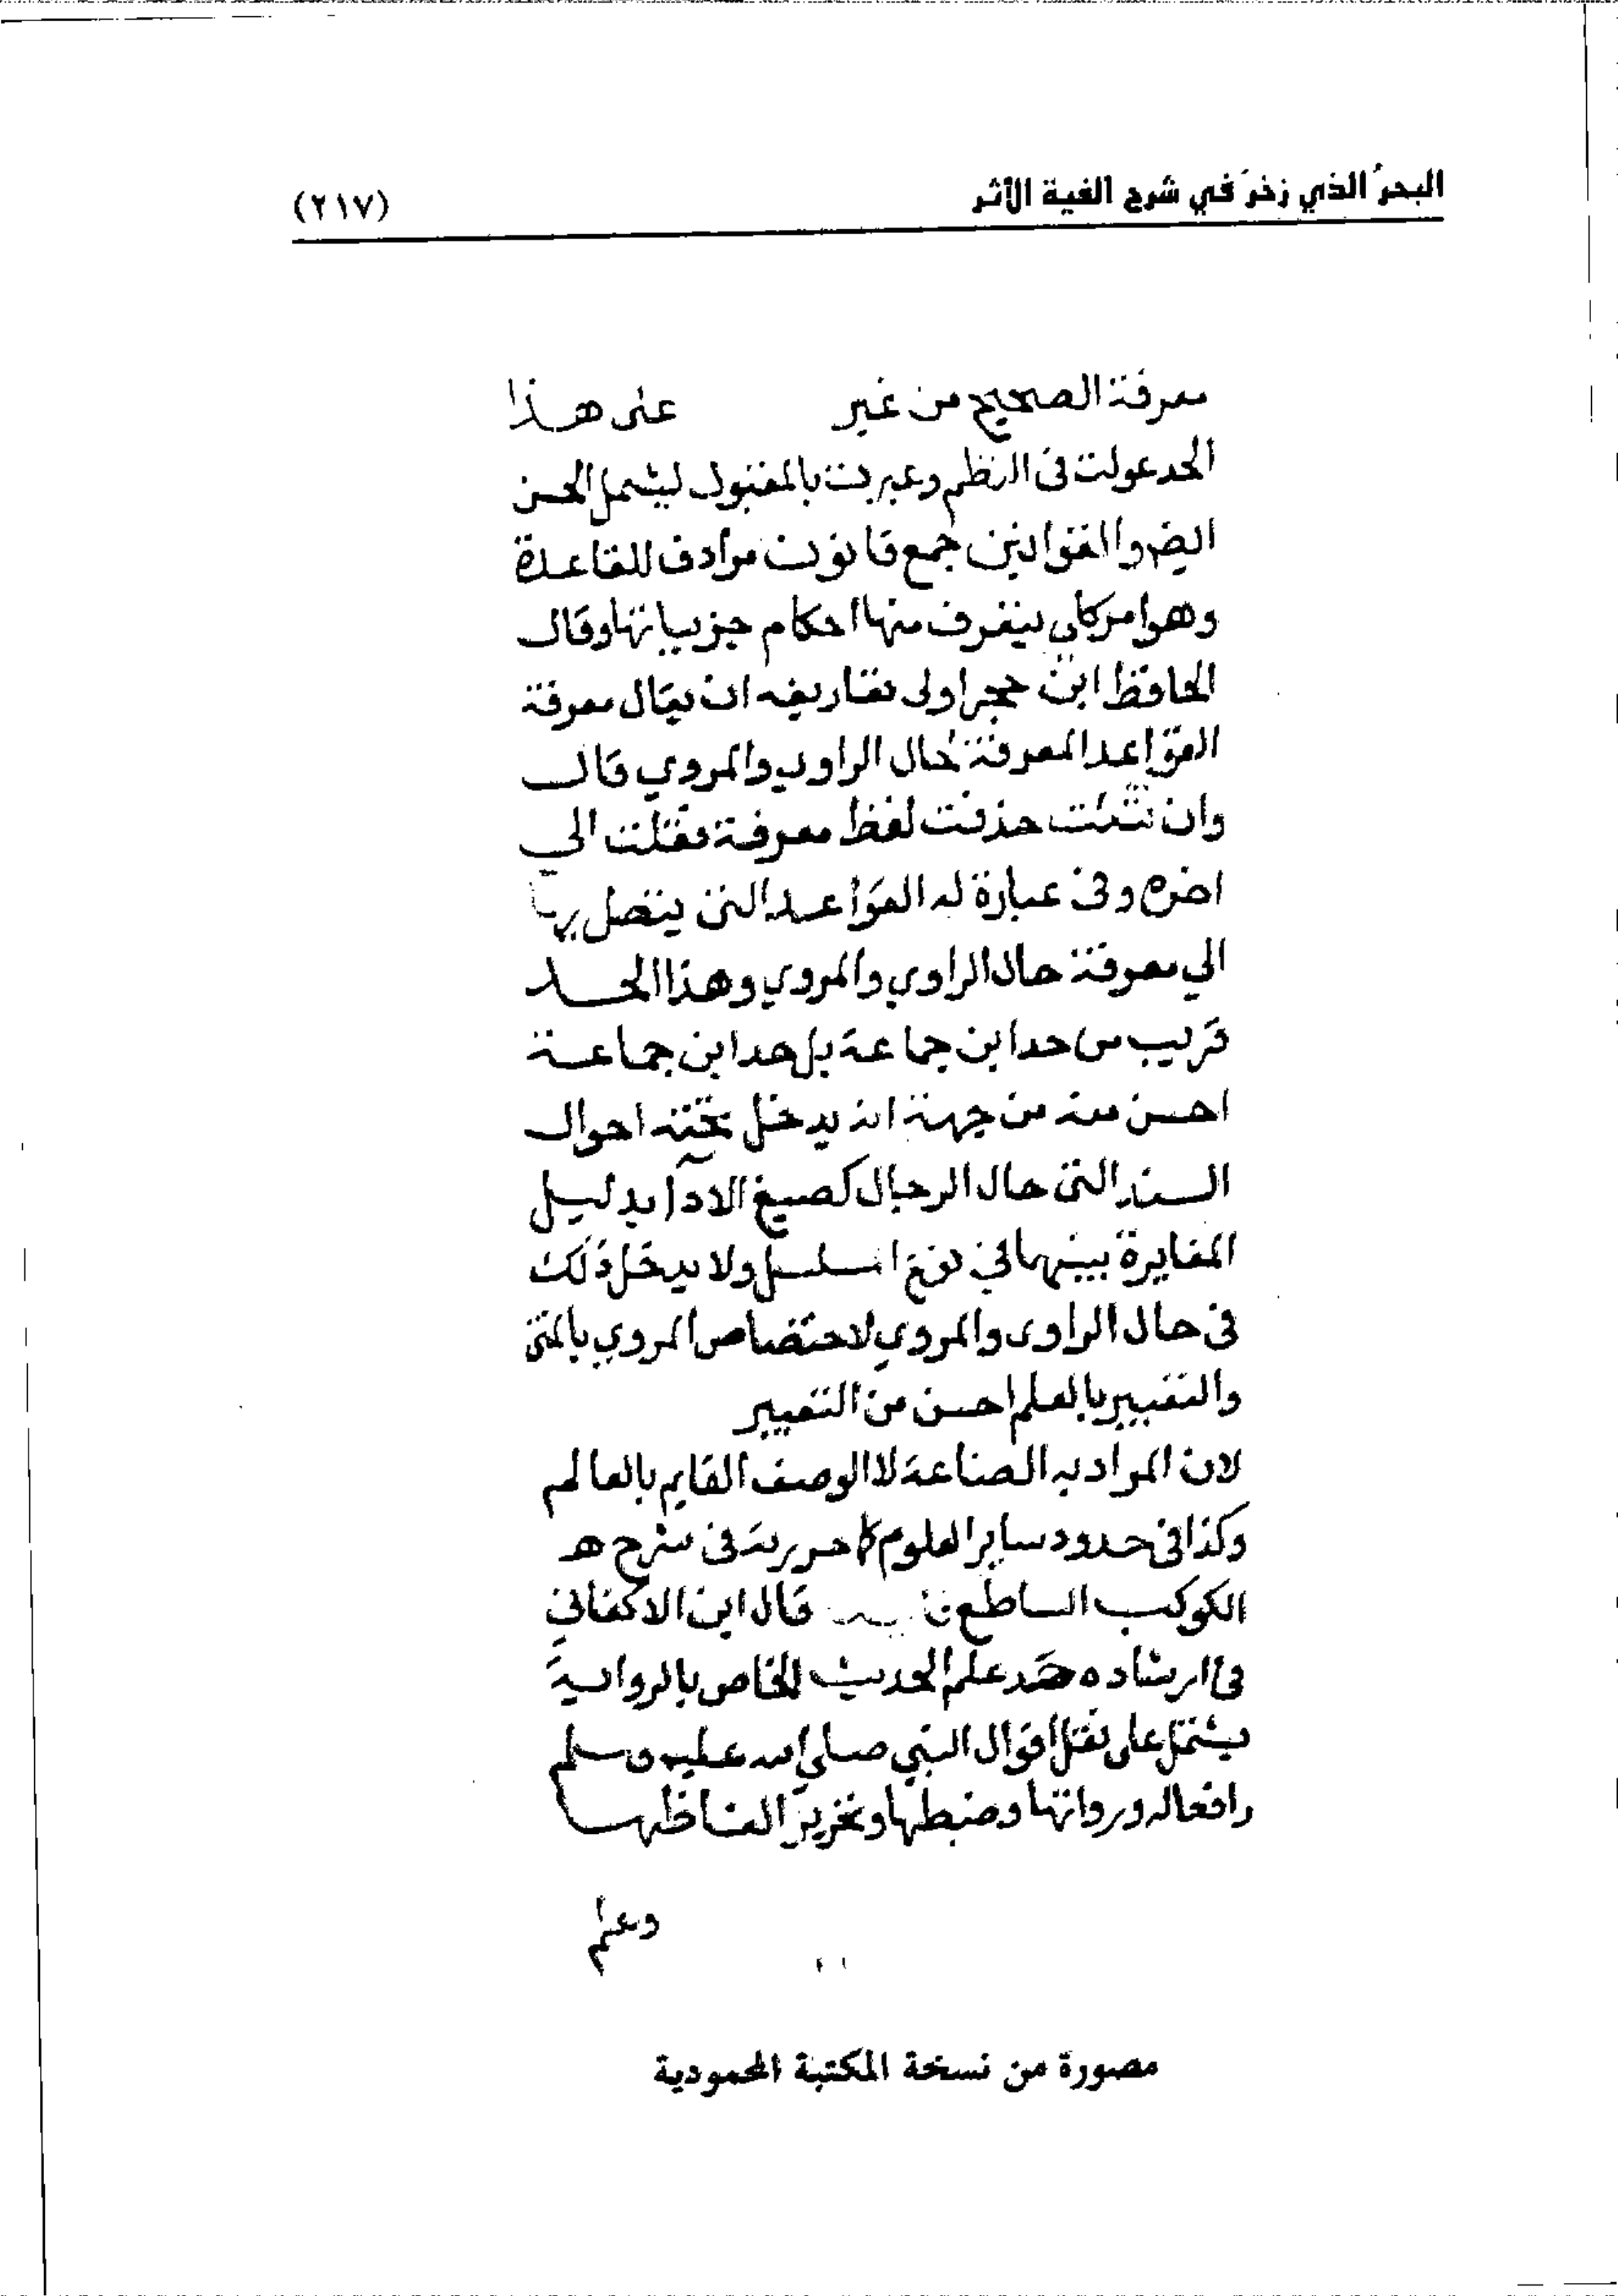 البحرُ الذي زخرَ في شرح ألفية الأثر
(٢١٧)
معرفة الصحيح من غير على هذا
الحد عولت فى النظم وعبرت بالمقبول ليشمل الحسن
ايضا والقوانين جمع قانون مرادف للقاعدة
وهو امر كلي يتعرف منها احكام جزيياتها وقال
الحافظ ابن حجر اولى تعاريفه ان يقال معرفة
القواعد المعرفة بحال الراوي والمروي قال
وان شئت حذفت لفظ معرفة فقلت الي
اخره وفى عبارة له القواعد التى يتصل بها
الي معرفة حال الراوي والمروي وهذا الحد
قريب من حد ابن جماعة بل حد ابن جماعة
احسن منه من جهة انه يدخل تحته احوال
السند التى حال الرجال كصيغ الادآ بدليل
المغايرة بينهما في نوع المسلسل ولا يدخل ذلك
فى حال الراوى والمروي لاختصاص المروي بالمتن
والتعبير بالعلم احسن من التعبير
لان المراد به الصناعة لا الوصف القايم بالعالم
وكذا فى حدود ساير العلوم كما حررته فى شرح
الكوكب الساطع قال ابن الاكفاني
فى ارشاده حد علم الحديث الخاص بالرواية
يشتمل على نقل اقوال النبي صلي الله عليه وسلم
وافعاله وروايتها وضبطها وتحرير الفاظها
وعلم
مصورة من نسخة المكتبة المحمودية